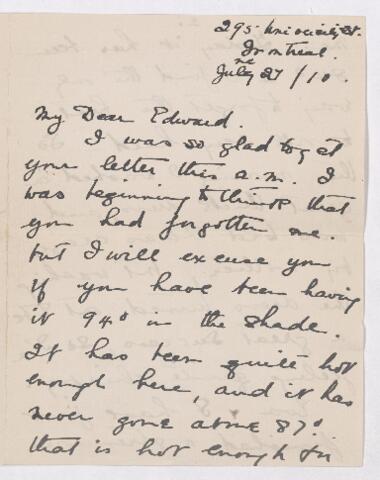 295 University St.
Montreal.
July 27/10.
My Dear Edward.
I was so glad to get
your letter this a.m. I
was beginning to think that
you had forgotten me.
but I will excuse you
if you have been having
it 94° in the shade.
It has been quite hot
enough here, and it has
never gone above 87°.
that is hot enough for